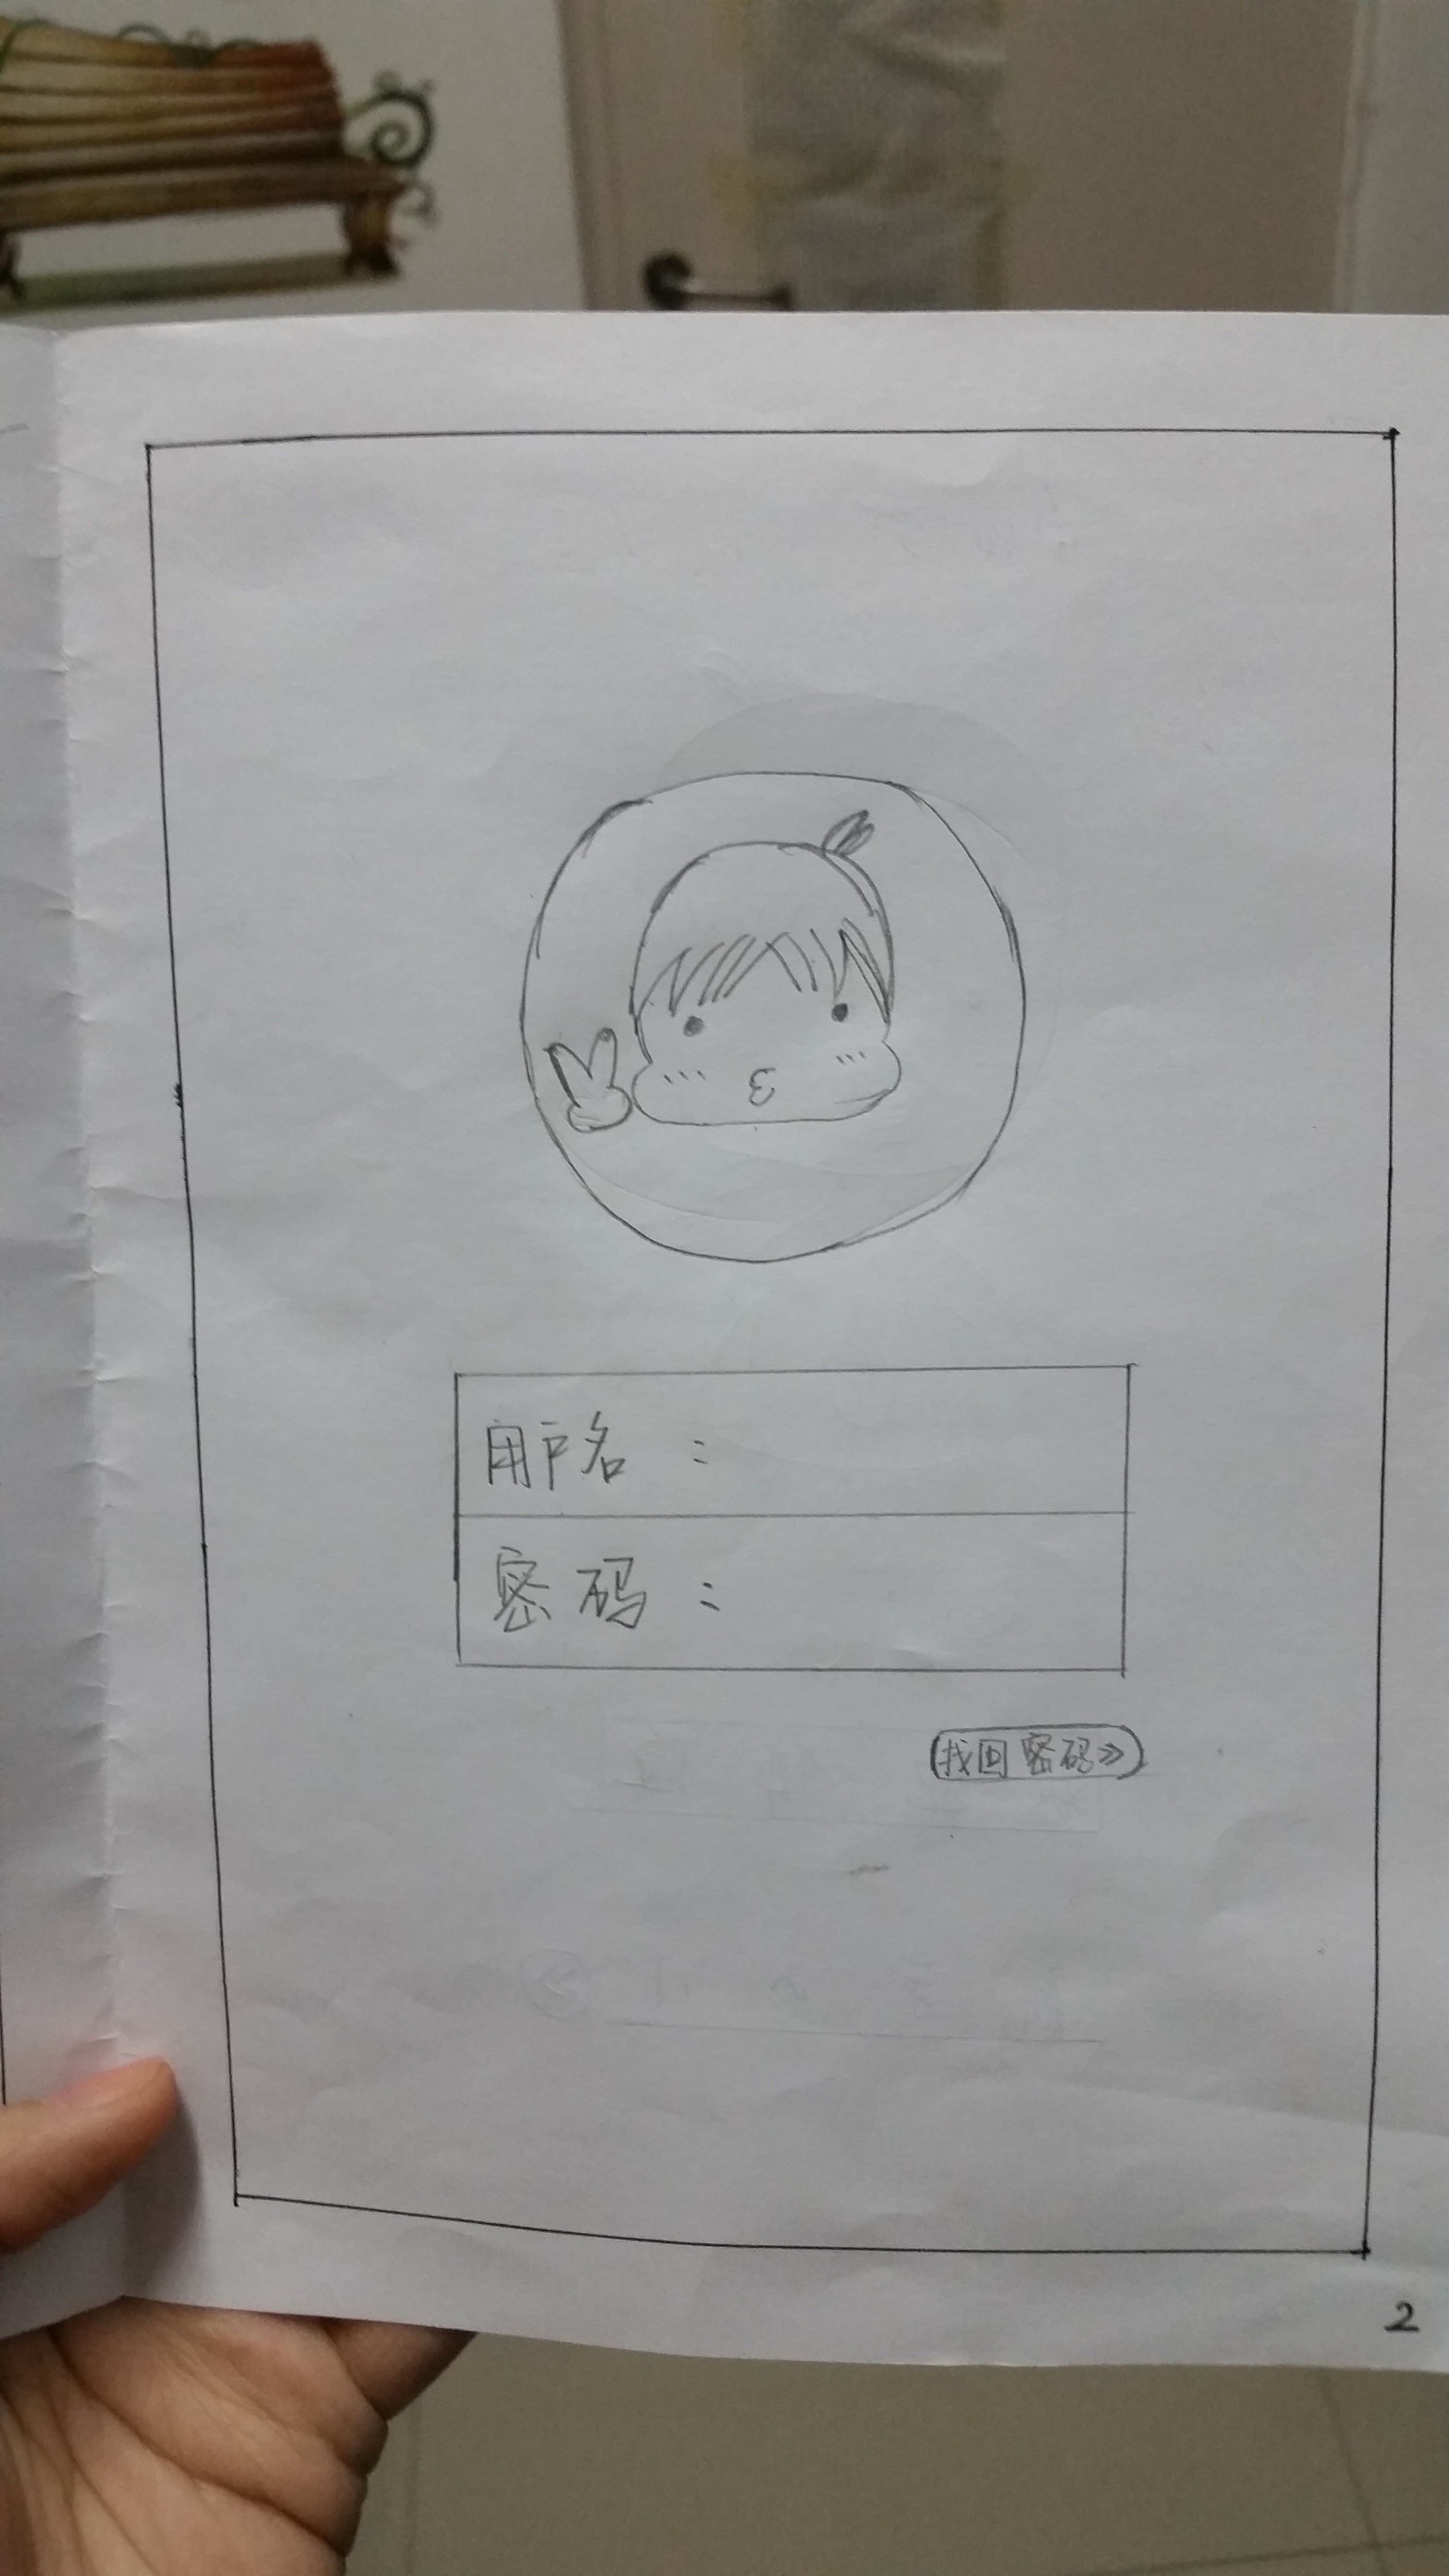 用户名：
密码：
找回密码>>
2